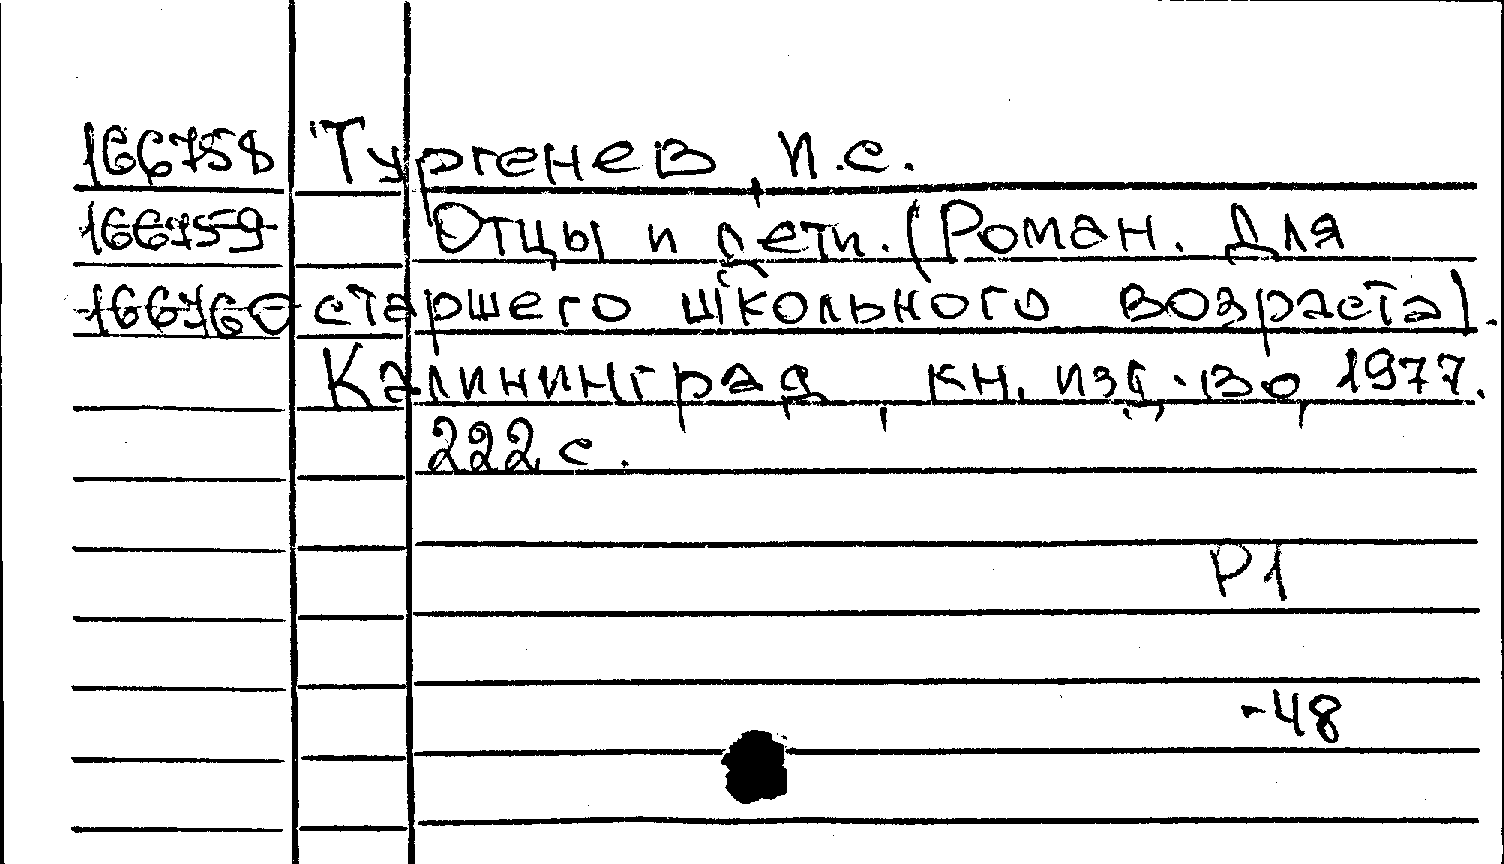 166758 Тургенев, И.С.
166759 Отцы и дети. (Роман. Для
166760 старшего школьного возраста).
Калининград, кн. изд-во, 1977.
222 с.
Р1
-48